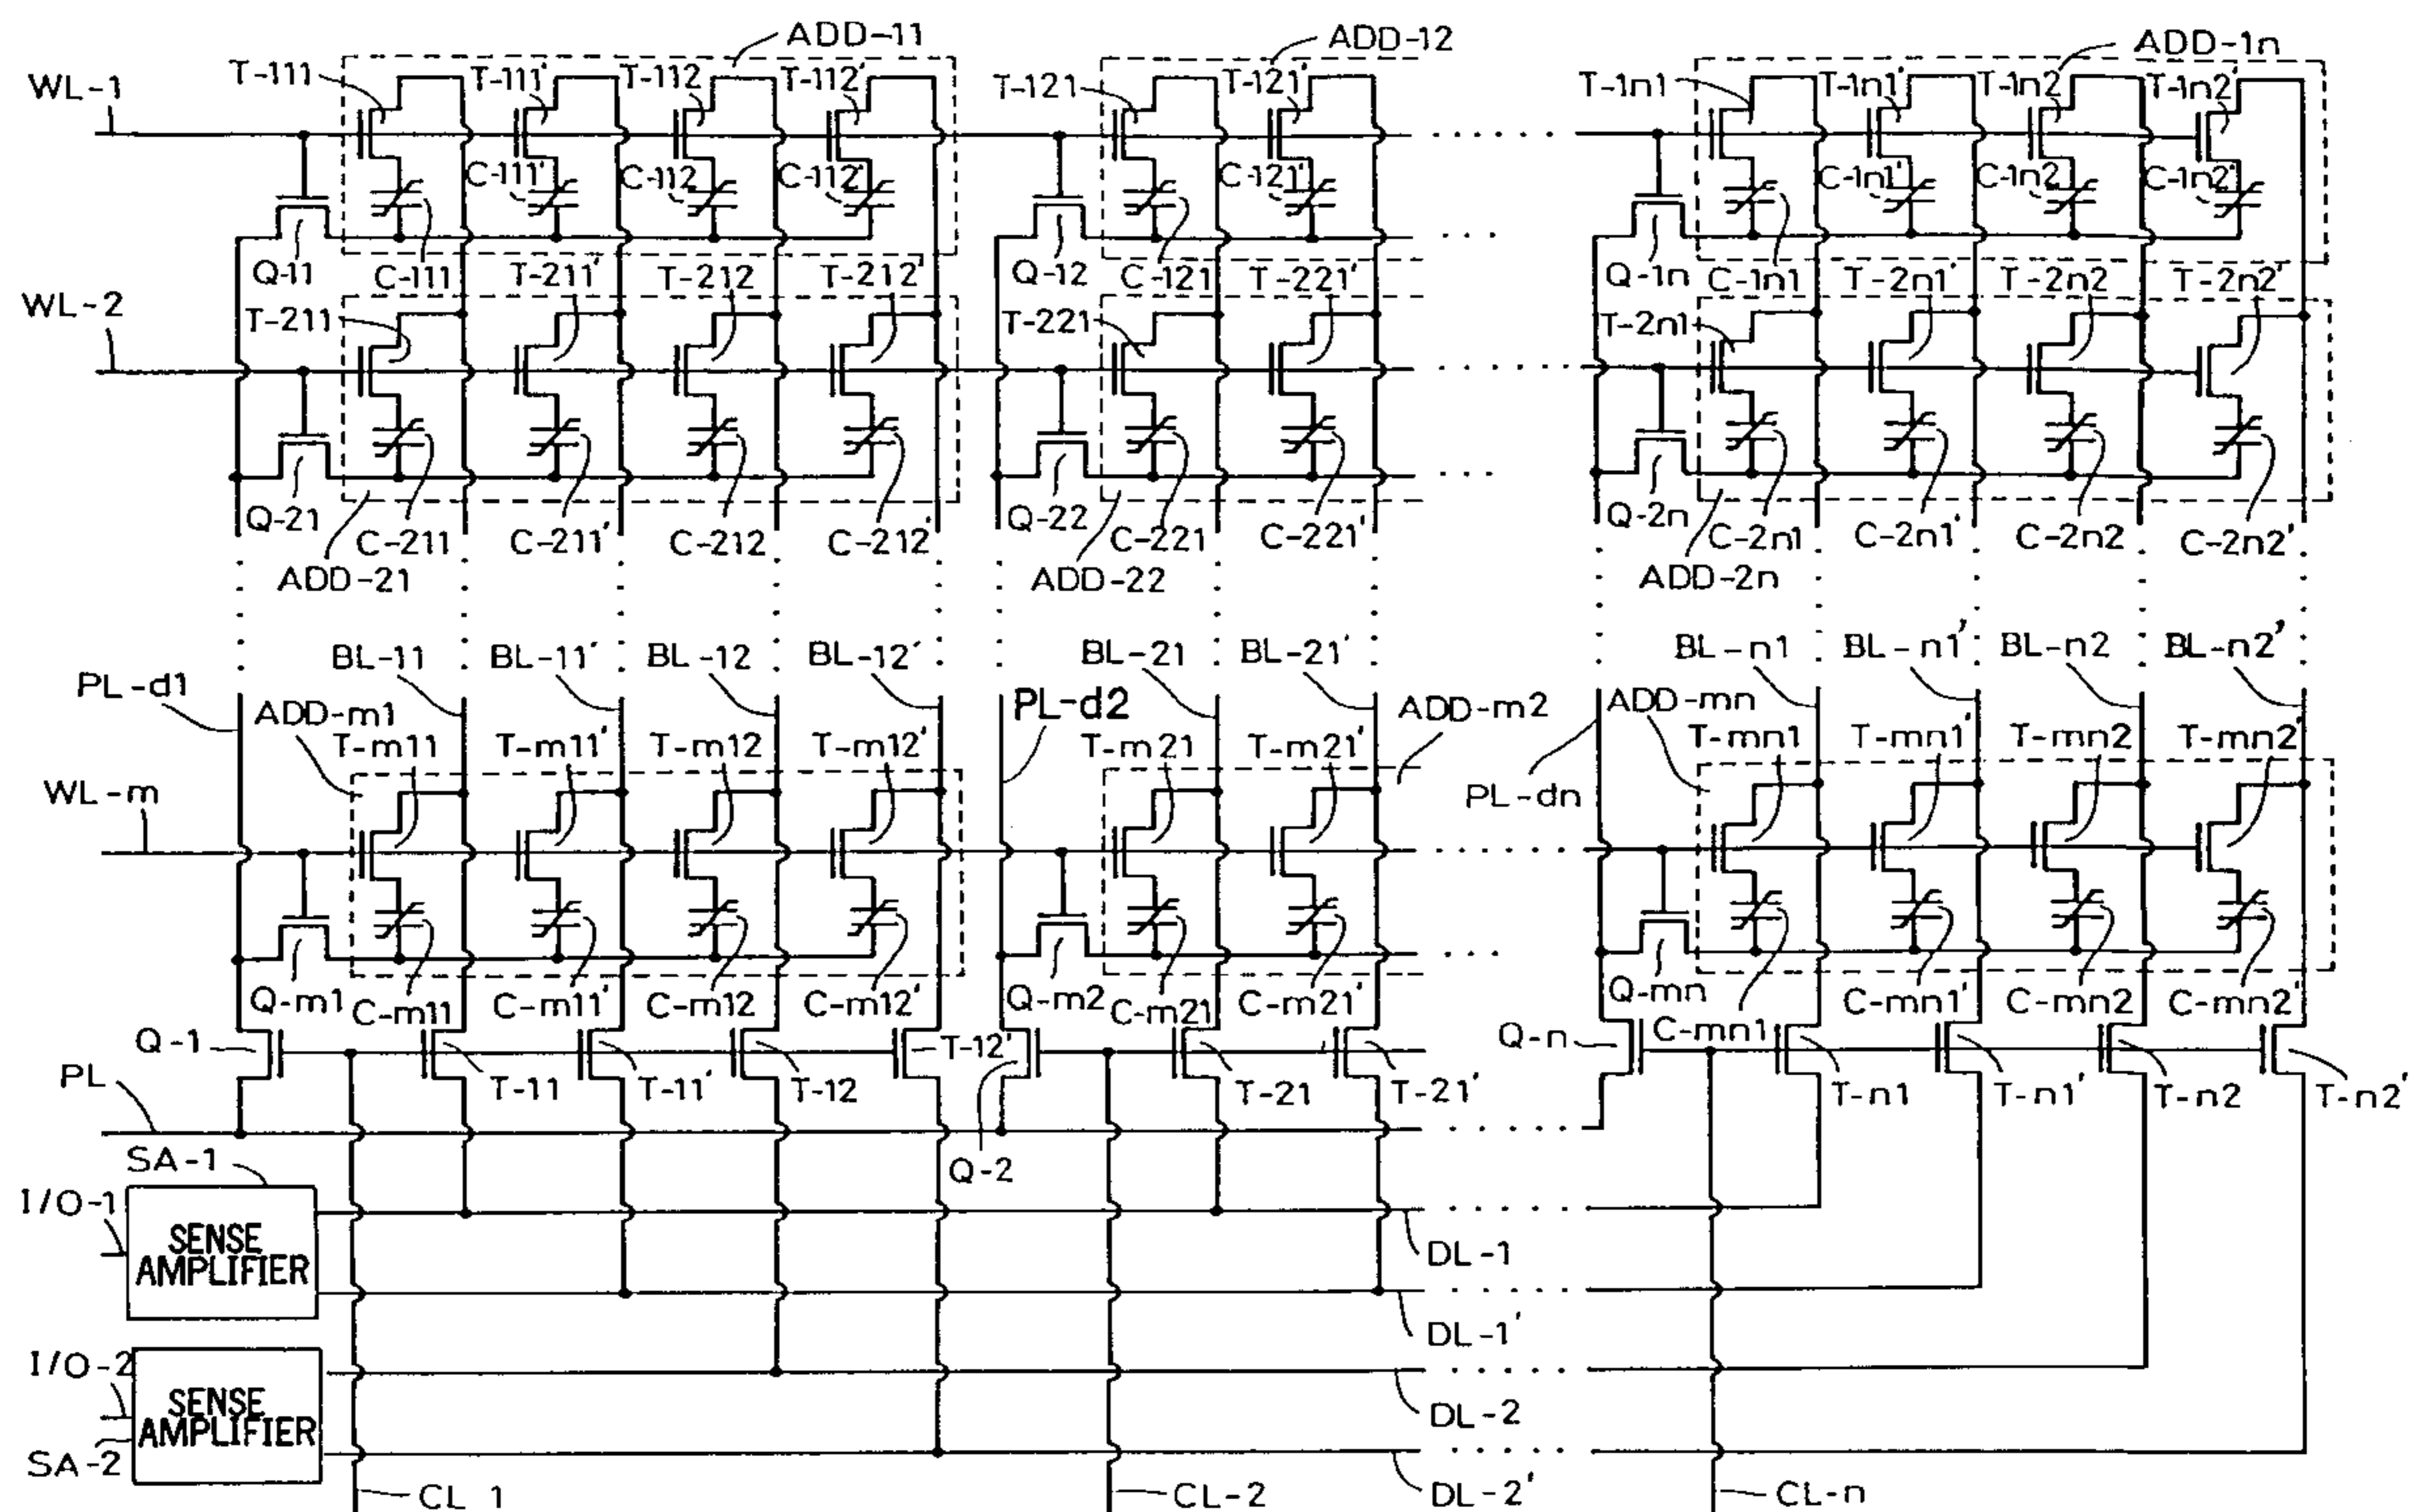 ADD-11 ADD-12 ADD-1n
T-111 T-111' T-112 T-112' T-121 T-121' T-1n1 T-1n1' T-1n2 T-1n2'
WL-1
C-111' C-112 C-112' C-121' C-1n1' C-1n2 C-1n2'
Q-11 C-111 Q-12 C-121 Q-1n C-1n1
T-211' T-212 T-212' T-221' T-2n1' T-2n2 T-2n2'
WL-2 T-211 T-221 T-2n1
Q-21 Q-22 Q-2n
C-211 C-211' C-212 C-212' C-221 C-221' C-2n1 C-2n1' C-2n2 C-2n2'
ADD-21 ADD-22 ADD-2n
BL-11 BL-11' BL-12 BL-12' BL-21 BL-21' BL-n1 BL-n1' BL-n2 BL-n2'
PL-d1 ADD-m1 PL-d2 ADD-m2 ADD-mn
T-m11 T-m11' T-m12 T-m12' T-m21 T-m21' T-mn1 T-mn1' T-mn2 T-mn2'
WL-m PL-dn
Q-m1 C-m11 C-m11' C-m12 C-m12' Q-m2 C-m21 C-m21' Q-mn C-mn1 C-mn1' C-mn2 C-mn2'
Q-1 T-12' Q-n
PL T-11 T-11' T-12 T-21 T-21' T-n1 T-n1' T-n2 T-n2'
SA-1 Q-2
I/O-1
SENSE
AMPLIFIER
DL-1
DL-1'
I/O-2
SENSE
AMPLIFIER
DL-2
SA-2
DL-2'
CL 1 CL-2 CL-n